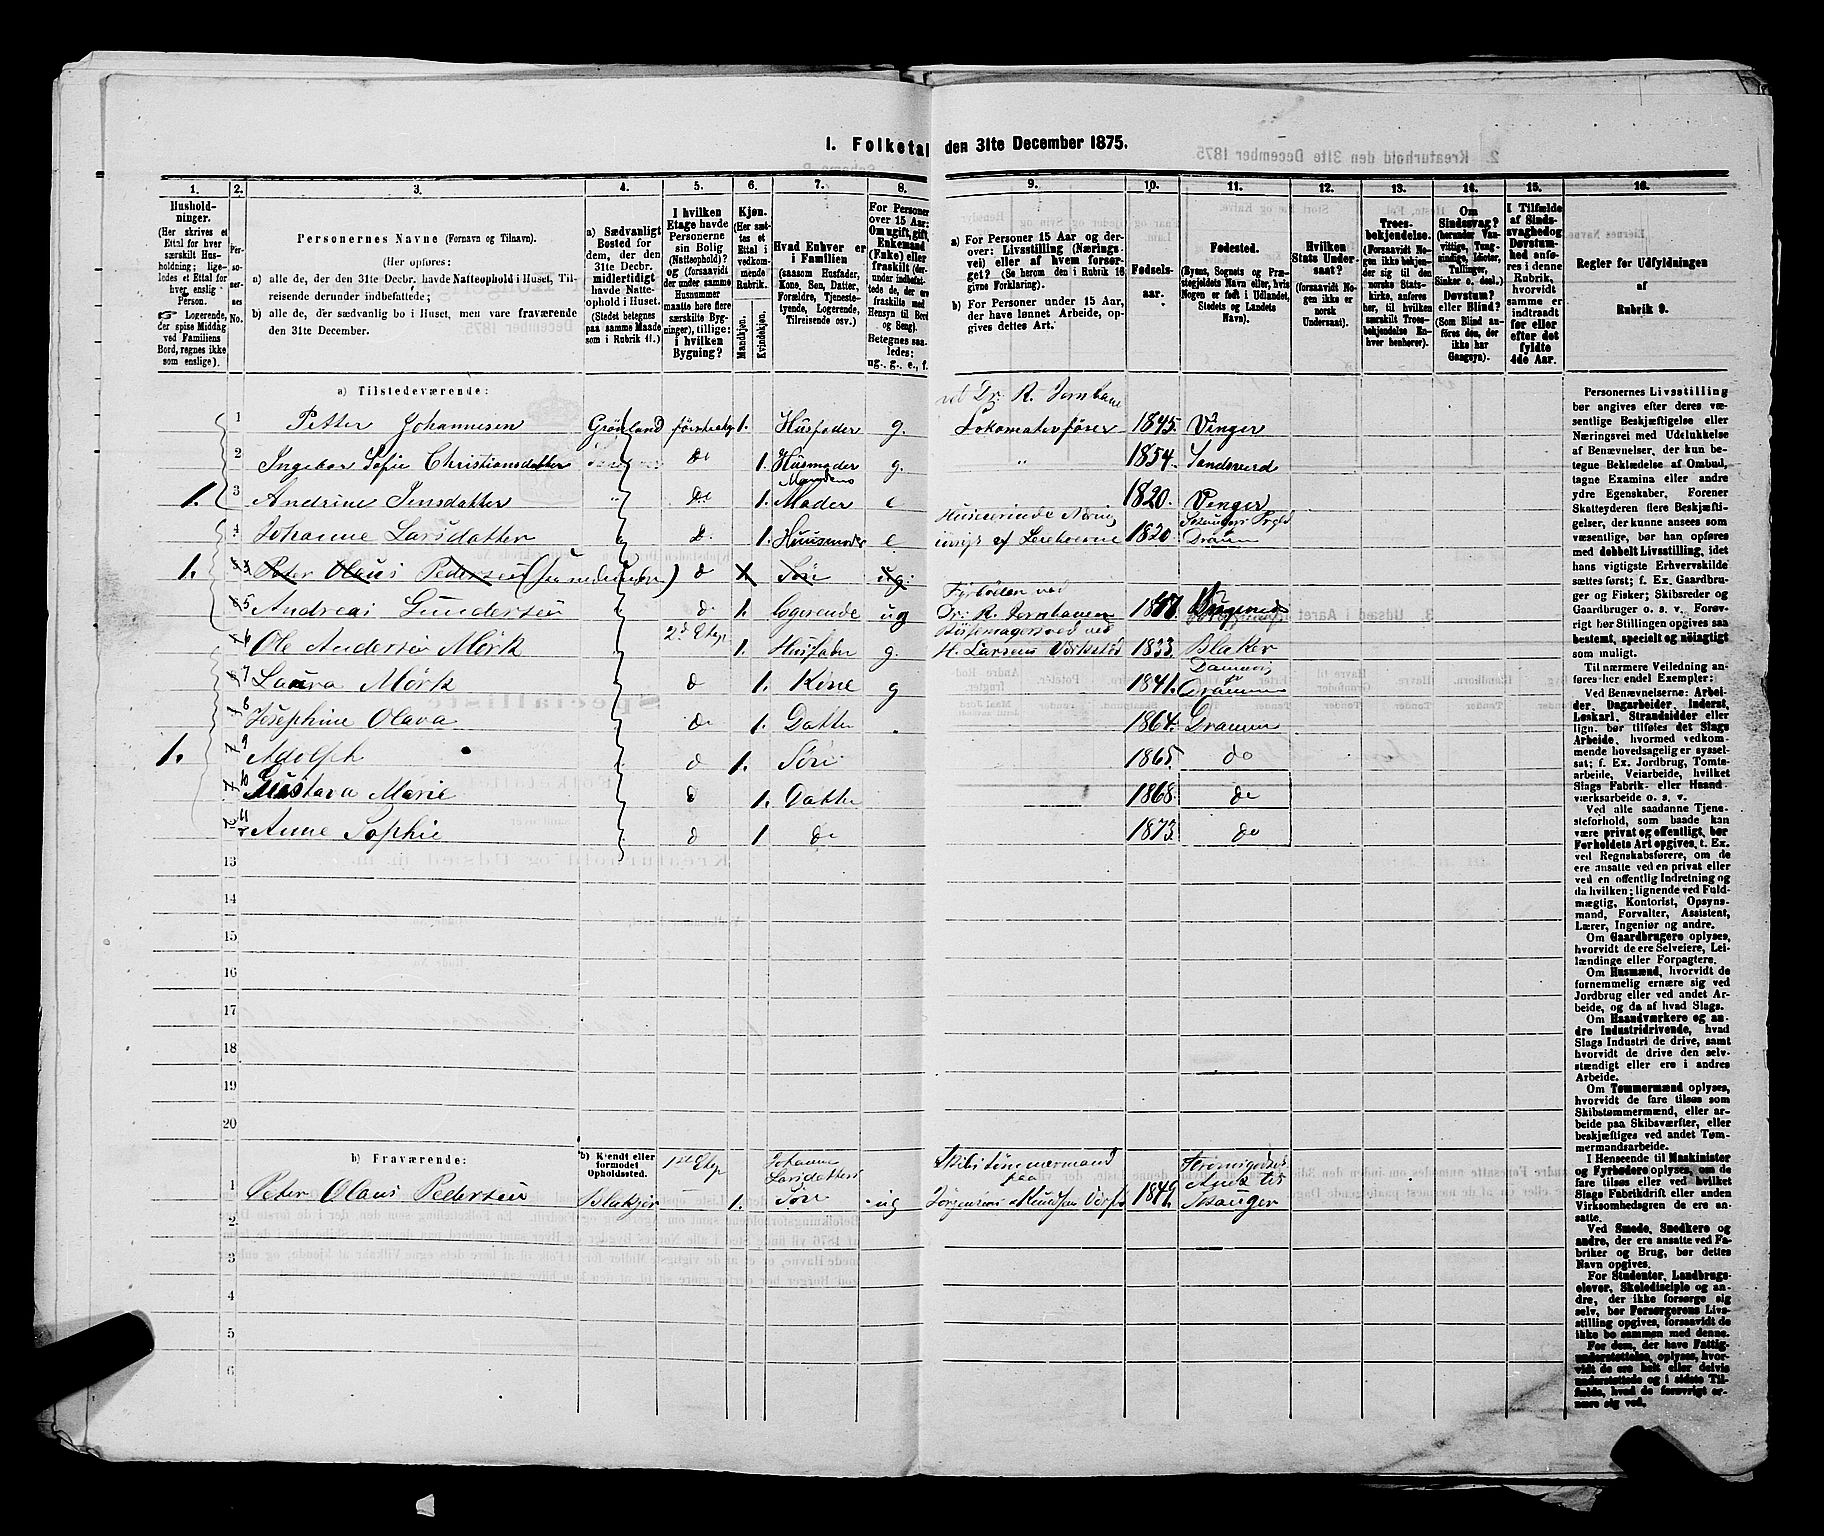 1. Folketal den 31te December 1875.
1. 2. 3. 4. 5. 6. 7. 8. 9. 10. 11. 12. 13. 14. 15. 16.
Hushold-
ninger.
(Her skrives et
Ettal for hver
særskilt Hus-
holdning; lige-
ledes et Ettal for
hver, enslig
Person.
☞ Logerende,
der spise Middag
ved Familiens
Bord, regnes ikke
som enslige).
Per-
so-
ner-
nes
No.
Personernes Navne (Fornavn og Tilnavn).
(Her opføres:
a) alle de, der den 31te Decbr. havde Natteophold i Huset, Til-
reisende derunder indbefattede;
b) alle de, der sædvanlig bo i Huset, men vare fraværende
den 31te December.
a) Sædvanligt
Bosted for
dem, der den
31te Decbr.
midlertidigt
havde Natte-
ophold i Huset.
(Stedet betegnes
paa samme Maade
som i Rubrik 11.)
I hvilken
Etage havde
Personerne
sin Bolig
(Natteophold)?
og (forsaavidt
der under samme
Husnummer
maatte høre flere
særskilte Byg-
ninger), tillige:
i hvilken
Bygning?
Kjøn.
(Her sæt-
tes et
Ettal i
vedkom-
mende
Rubrik.
Mandkjøn.
Kvindekjøn.
Hvad Enhver er
i Familien
(saasom Husfader,
Kone, Søn, Datter,
Forældre, Tjeneste-
tyende, Logerende,
Tilreisende osv.)
For Personer
over 15 Aar:
Om ugift, gift,
Enkemand
(Enke) eller
fraskilt (der-
under indbefat-
tede de, der ere
fraskilte med
Hensyn til Bord
og Seng).
Betegnes saa-
ledes:
ug., g., e., f.
a) For Personer 15 Aar og der-
over: Livsstilling (Nærings-
vei) eller af hvem forsør-
get? (Se herom den i Rubrik 16
givne Forklaring).
b) For Personer under 15 Aar,
der have lønnet Arbeide, op-
gives dettes Art.
Fødsels-
aar.
Fødested.
(Byens, Sognets og Præ-
stegjeldets Navn eller, hvis
Nogen er født i Udlandet,
Stedets og Landets
Navn).
Hvilken
Stats Under-
saat?
(forsaavidt No-
gen ikke er
norsk
Undersaat).
Troes-
bekjendelse.
(Forsaavidt No-
gen ikke bekjen-
der sig til den
norske Stats-
kirke, anføres
her, til hvilken
særskilt Troes-
bekjendelse En-
hver henhører).
Om
Sindssvag?
(herunder Van-
vittige, Tung-
sindige, Idioter,
Tullinger,
Sinker o. desl.)
Døvstum?
eller Blind?
(Som Blind an-
føres den, der
ikke har
Gangsyn).
I Tilfælde
af Sinds-
svaghed og
Døvstum-
hed anfø-
res i denne
Rubrik,
hvorvidt
samme er
indtraadt
før eller
efter det
fyldte
4de Aar.
Regler for Udfyldningen
af
Rubrik 9.
a) Tilstedeværende:
1 Petter Johannesen Grønland første etg 1. Husfader g. Lokomotivfører 1845. Vinger
2 Ingebor Sofie Christiansdatter do 1. Husmoder g. " 1854. Sandsverd
Mandens
1. 3 Andrine Jensdatter " do 1. Moder e 1820. Vinger
4 Johanne Larsdatter do. 1. Huusmoder e 1820.
1. Peter Olaus Pedersen d X Søn ug.
Fyrbøder ved
5 Andreas Gundersen d 1. Logerende ug
6 Ole Andersen Mørk 2d Etge 1. Husfader g. H. Larsens Værksted 1833. Blaker
7 Laura Mørk d 1. Kone g 1841. Drammen
8 Josephine Olava do 1. Datter 1864. Drammen
1. 9 Adolph d 1. Søn 1865. do
10 Gustava Marie d 1. Datter 1868. do
11 Anne Sophie d 1 do 1873. do
13
14
15
16
17
18
19
20
b) Fraværende:
b) Kjendt eller
formodet
Opholdssted.
1st Etge
Johanne
Larsdatters
Skibstømmermand
paa
1 Peter Olaus Pedersen 1. Søn ug
2
3
4
5
6
Personernes Livsstilling
bør angives efter deres væ-
sentlige Beskjæftigelse eller
Næringsvei med Udelukkelse
af Benævnelser, der kun be-
tegne Beklædelse af Ombud,
tagne Examina eller andre
ydre Egenskaber. Forener
Skatteyderen flere Beskjæfti-
gelser, der kunne ansees som
væsentlige, bør han opføres
med dobbelt Livsstilling, idet
hans vigtigste Erhvervskilde
sættes først; f. Ex. Gaardbru-
ger og Fisker; Skibsreder og
Gaardbruger o. s. v. Forøv-
rigt bør Stillingen opgives saa
bestemt, specielt og nøiagtigt
som muligt.
Til nærmere Veiledning an-
føres her endel Exempler:
Ved Benævnelserne: Arbei-
der, Dagarbeider, Inderst,
Løskarl, Strandsidder eller
lign. bør tilføies det Slags
Arbeide, hvormed vedkom-
mende hovedsagelig er syssel-
sat; f. Ex. Jordbrug, Tomte-
arbeide, Veiarbeide, hvilket
Slags Fabrik- eller Haand-
værksarbeide o. s. v.
Ved alle saadanne Tjene-
steforhold, som baade kan
være privat og offentligt, bør
Forholdets Art opgives, t. Ex.
ved Regnskabsførere, om de
ere ansatte ved en privat eller
ved en offentlig Indretning og
da hvilken; lignende ved Fuld-
mægtig, Kontorist, Opsyns-
mand, Forvalter, Assistent,
Lærer, Ingeniør og andre.
Om Gaardbrugere oplyses,
hvorvidt de ere Selveiere, Lei-
lændinge eller Forpagtere.
Om Husmænd, hvorvidt de
fornemmelig ernære sig ved
Jordbrug eller ved andet Ar-
beide, og da af hvad Slags.
Om Haandværkere og an-
dre Industridrivende, hvad
Slags Industri de drive, samt
hvorvidt de drive den selv-
stændigt eller ere i andres
Arbeide.
Om Tømmermænd oplyses,
hvorvidt de fare tilsøs som
Skibstømmermænd, eller ar-
beide paa Skibsværfter, eller
beskjæftiges ved andet Tøm-
mermandsarbeide.
I Henseende til Maskinister
og Fyrbødere oplyses, om de
fare tilsøs eller ved hvilket
Slags Fabrikdrift eller anden
Virksomhedsgren de ere an-
satte.
Ved Smede, Snedkere og
andre, der ere ansatte ved Fa-
briker og Brug, bør dettes
Navn opgives.
For Studenter, Landbrugs-
elever, Skoledisciple og an-
dre, der ikke forsørge sig
selv, bør Forsørgerens Livs-
stilling opgives, forsaavidt de
ikke bo sammen med denne.
For dem, der have Fattig-
understøttelse, oplyses, hvor-
vidt de ere helt eller delvis
understøttede og i sidste Til-
fælde, hvad de forøvrigt er-
nære sig ved.